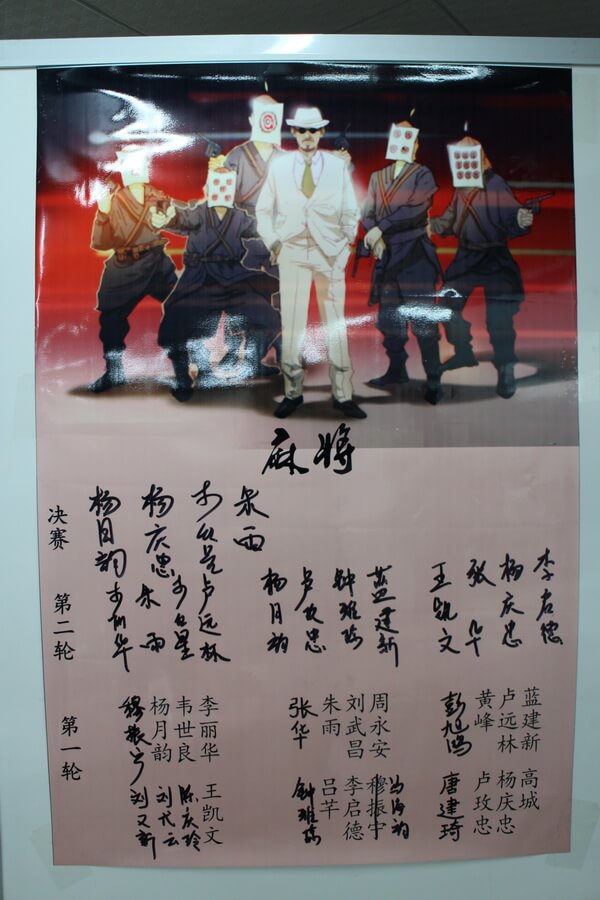 麻将
决赛
杨月韵
杨庆忠
朱雨
第二轮
卢远林
朱雨
杨月韵
卢玫忠
钟维琦
蓝建新
王凯文
张华
杨庆忠
李启德
第一轮
杨月韵
韦世良
李丽华
刘又新
刘代云
陈庆玲
王凯文
张华
朱雨
刘武昌
周永安
钟维琦
吕芊
李启德
穆振宇
彭旭鸿
黄峰
卢远林
蓝建新
唐建琦
卢玫忠
杨庆忠
高城